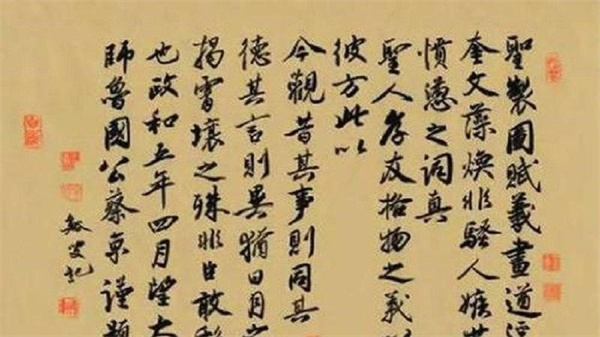 聖製圖賦羲畫道
奎文藻煥非騷人嫉世
憤懣之詞真
聖人孝友格物之義
彼方此以
今觀昔其事則同其
德其言則異猶日月
揭霄壤之殊非臣敢
也政和五年四月望太
師魯國公蔡京謹題
叟記